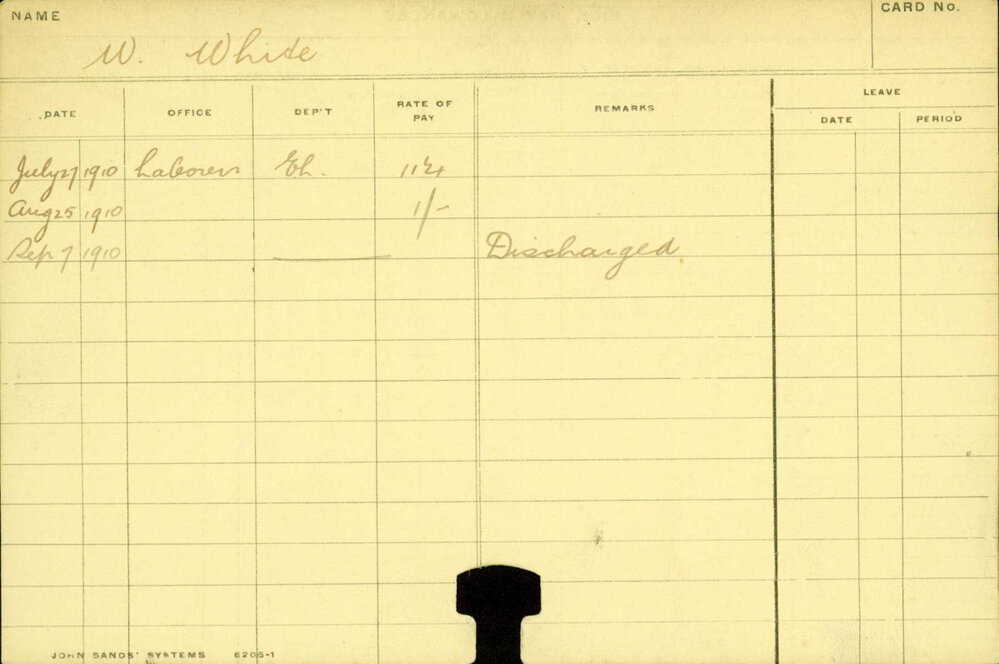 NAME
CARD No.
W. White
DATE OFFICE DEP'T RATE OF PAY REMARKS LEAVE
DATE PERIOD
July 27 1910 Laborer
Aug 25 1910 1/-
Sep 7 1910 Discharged
JOHN SANDS' SYSTEMS 6205-1